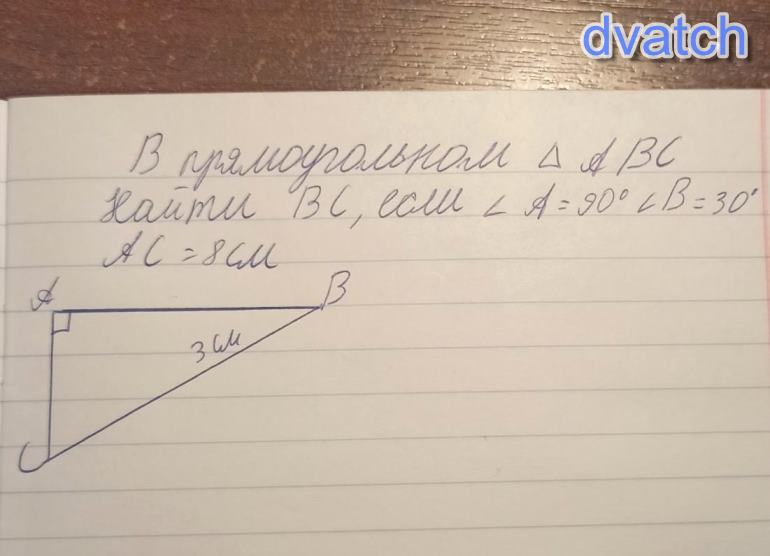 dvatch
В прямоугольном △ ABC
Найти BC, если ∠ A = 90° ∠ B = 30°
AC = 8 см
A
B
3 см
C